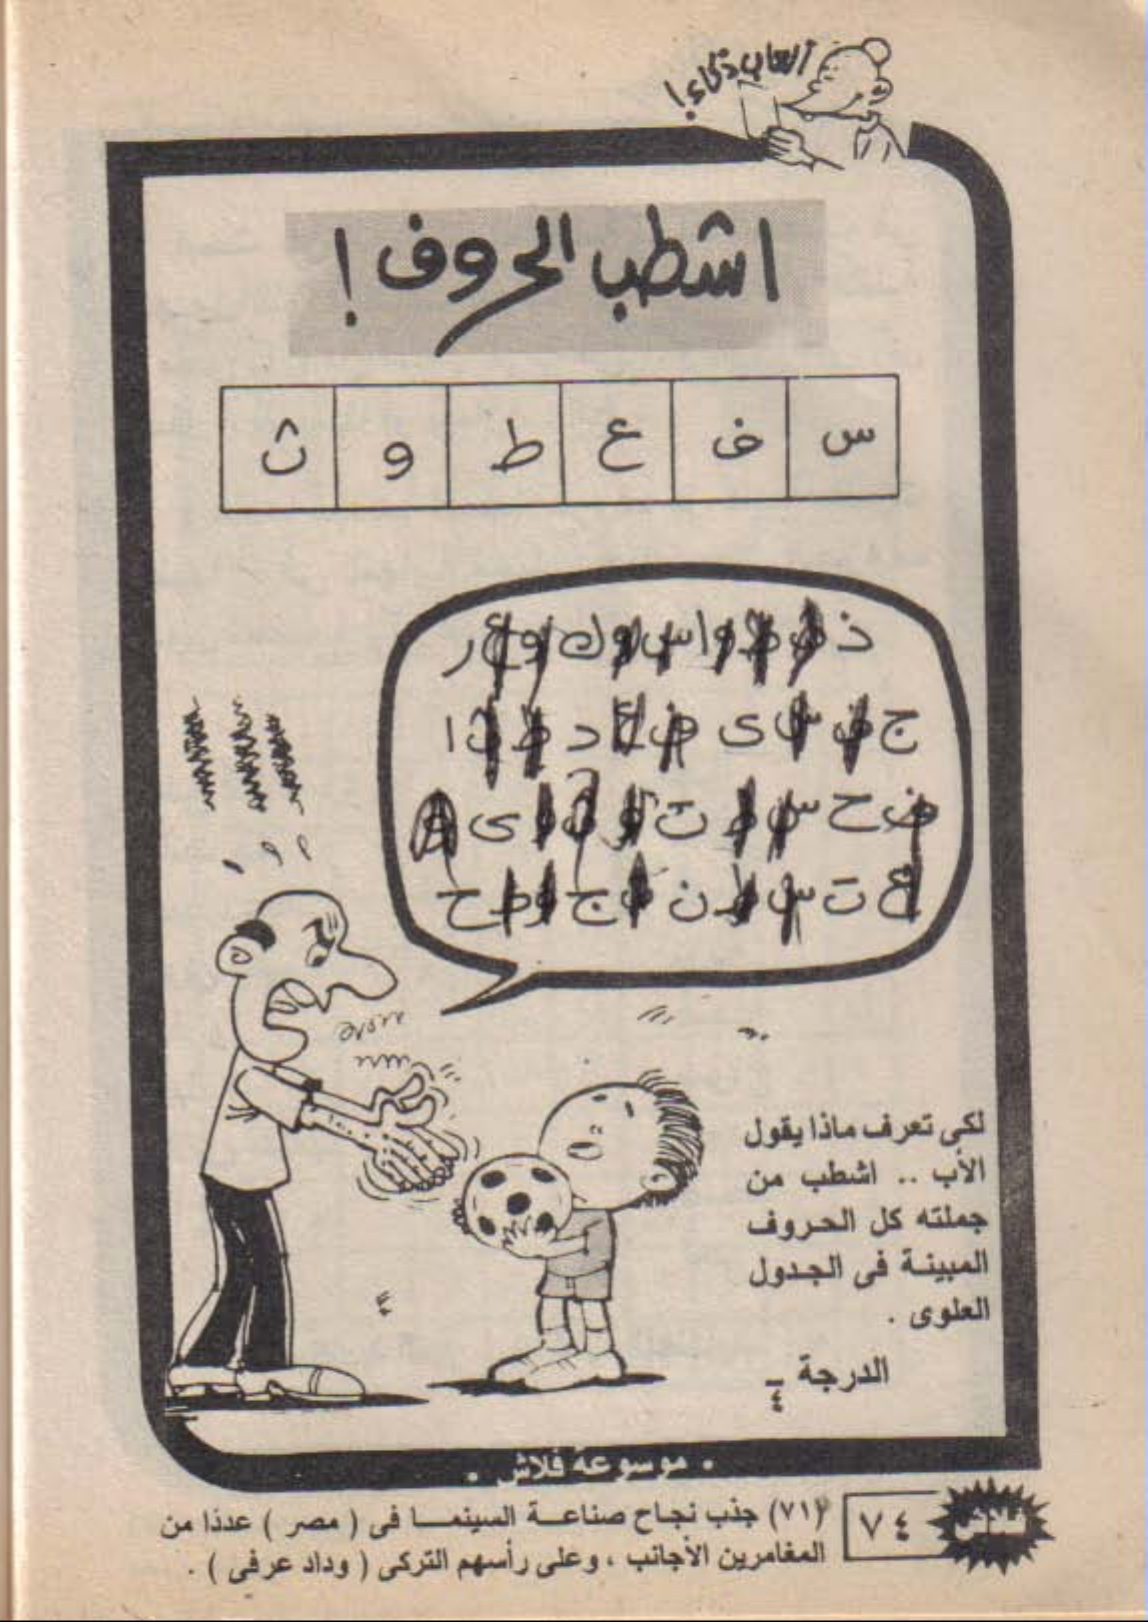 ألعاب ذكاء!
اشطب الحروف!
س ف ع ط و ث
ذ ا س ك و ع ر
ج ف س ى ف ع د ط ث ا
ف ح س ط ت ى
ع ت س ط ن ج و ط ح
لكى تعرف ماذا يقول
الأب .. اشطب من
جملته كل الحروف
المبينة فى الجدول
العلوى .
الدرجة -
٤
• موسوعة فلاش •
٧٤
(٧١) جذب نجاح صناعة السينما فى ( مصر ) عددًا من
المغامرين الأجانب ، وعلى رأسهم التركى ( وداد عرفى ) .